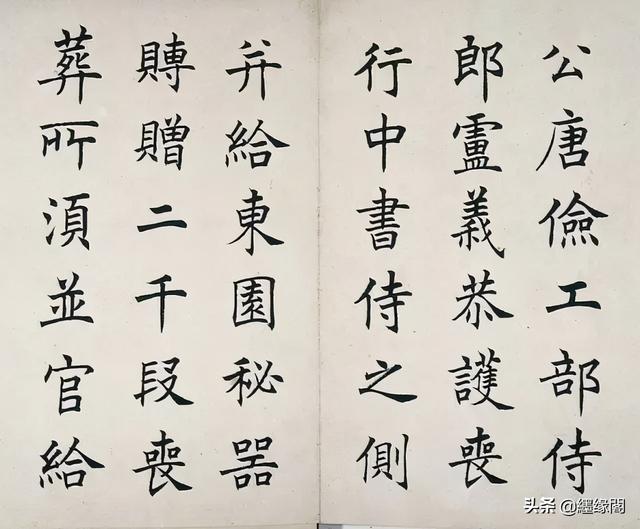 公唐儉工部侍
郎盧義恭護喪
行中書侍之側
并給東園秘器
賻贈二千段喪
葬所須並官給
头条 @纒缘閣